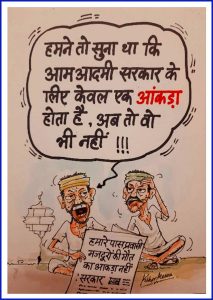 हमने तो सुना था कि
आम आदमी सरकार के
लिए केवल एक आंकड़ा
होता है, अब तो वो
भी नहीं !!!
हमारे पास प्रवासी
मजदूरों की मौत
का आंकड़ा नहीं
सरकार